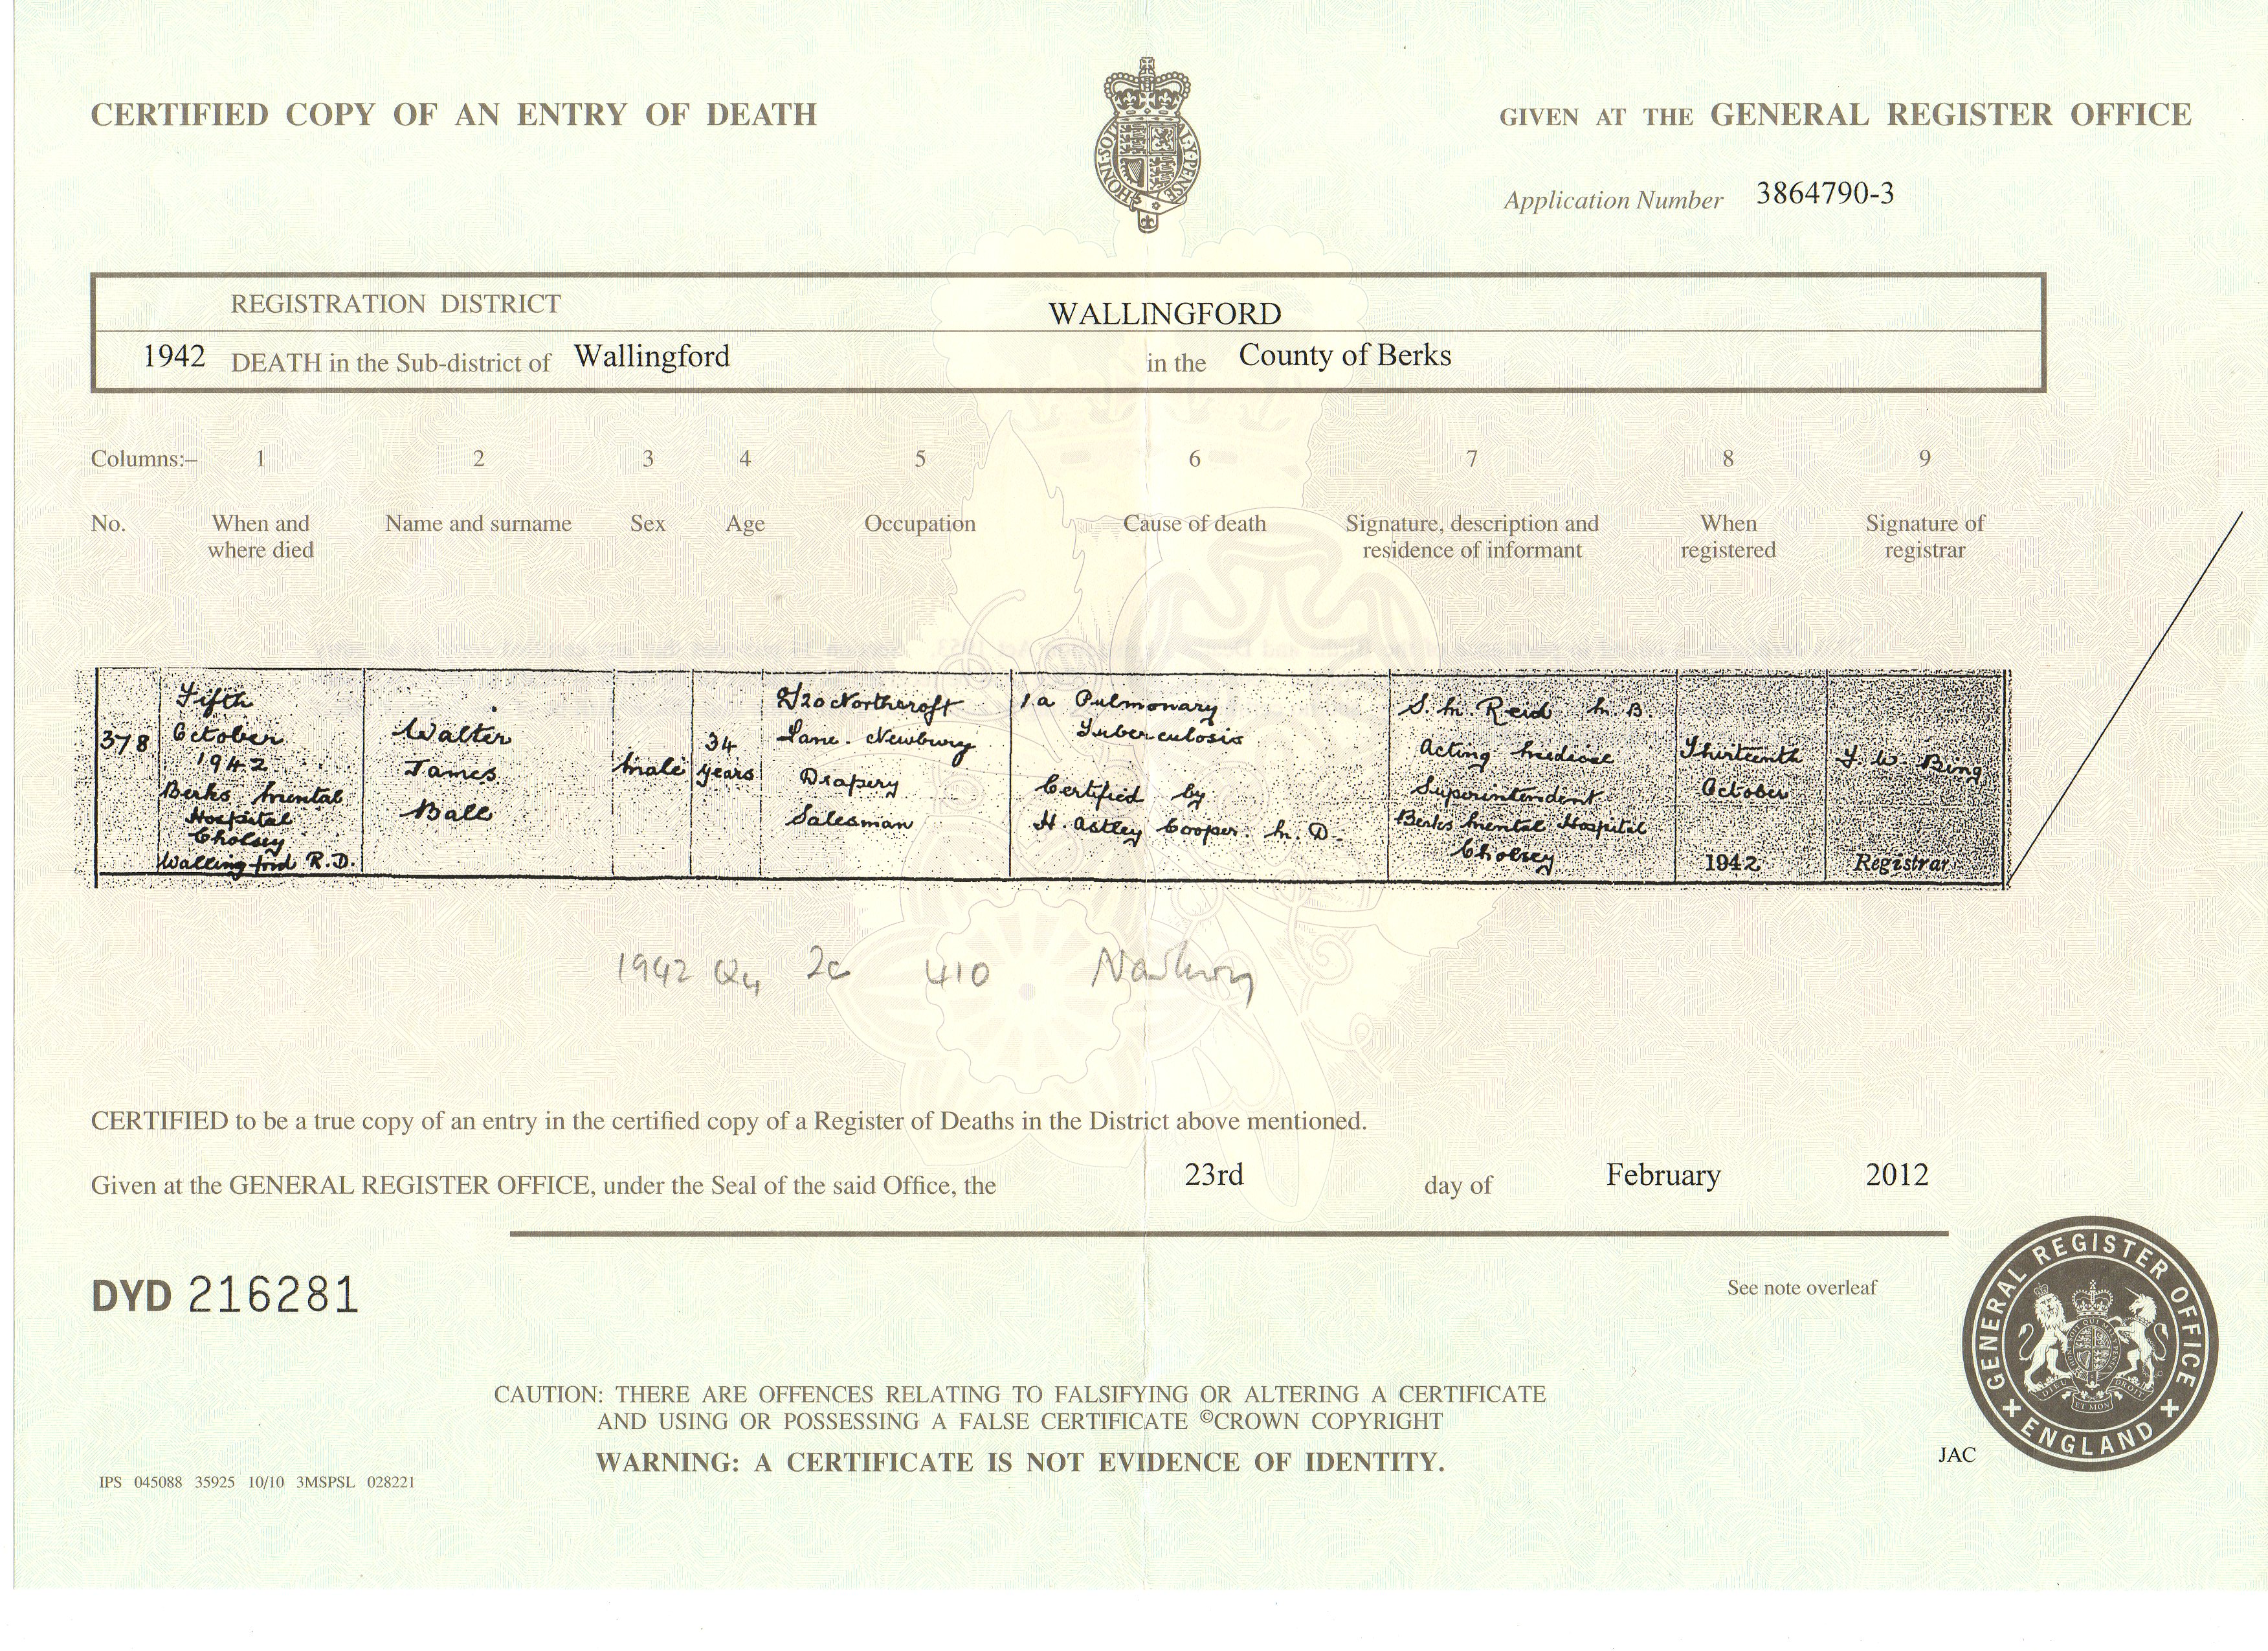 CERTIFIED COPY OF AN ENTRY OF DEATH
GIVEN AT THE GENERAL REGISTER OFFICE
HONI·SOI AL·Y·PENSE
Application Number 3864790-3
REGISTRATION DISTRICT WALLINGFORD
1942 DEATH in the Sub-district of Wallingford in the County of Berks
Columns:– 1 2 3 4 5 6 7 8 9
No. When and where died
Name and surname
Sex
Age
Occupation
Cause of death
Signature, description and
residence of informant
When
registered
Signature of
registrar
378
Fifth
October
1942
Berks Mental
Hospital
Cholsey
Wallingford R.D.
Walter
James
Ball
Male
34
years
20 Northcroft
Lane. Newbury
Drapery
Salesman
1a Pulmonary
Tuberculosis
Certified by
H. Astley Cooper. M.D.
S. M. Reid M.B.
Acting Medical
Superintendent
Berks Mental Hospital
Cholsey
Thirteenth
October
1942
Bing
Registrar
1942 Q4 2c 410 Newbury
CERTIFIED to be a true copy of an entry in the certified copy of a Register of Deaths in the District above mentioned.
Given at the GENERAL REGISTER OFFICE, under the Seal of the said Office, the 23rd day of February 2012
DYD 216281
See note overleaf
GENERAL REGISTER OFFICE
ENGLAND
DIEU ET MON DROIT
CAUTION: THERE ARE OFFENCES RELATING TO FALSIFYING OR ALTERING A CERTIFICATE
AND USING OR POSSESSING A FALSE CERTIFICATE ©CROWN COPYRIGHT
WARNING: A CERTIFICATE IS NOT EVIDENCE OF IDENTITY.
JAC
IPS 045088 35925 10/10 3MSPSL 028221